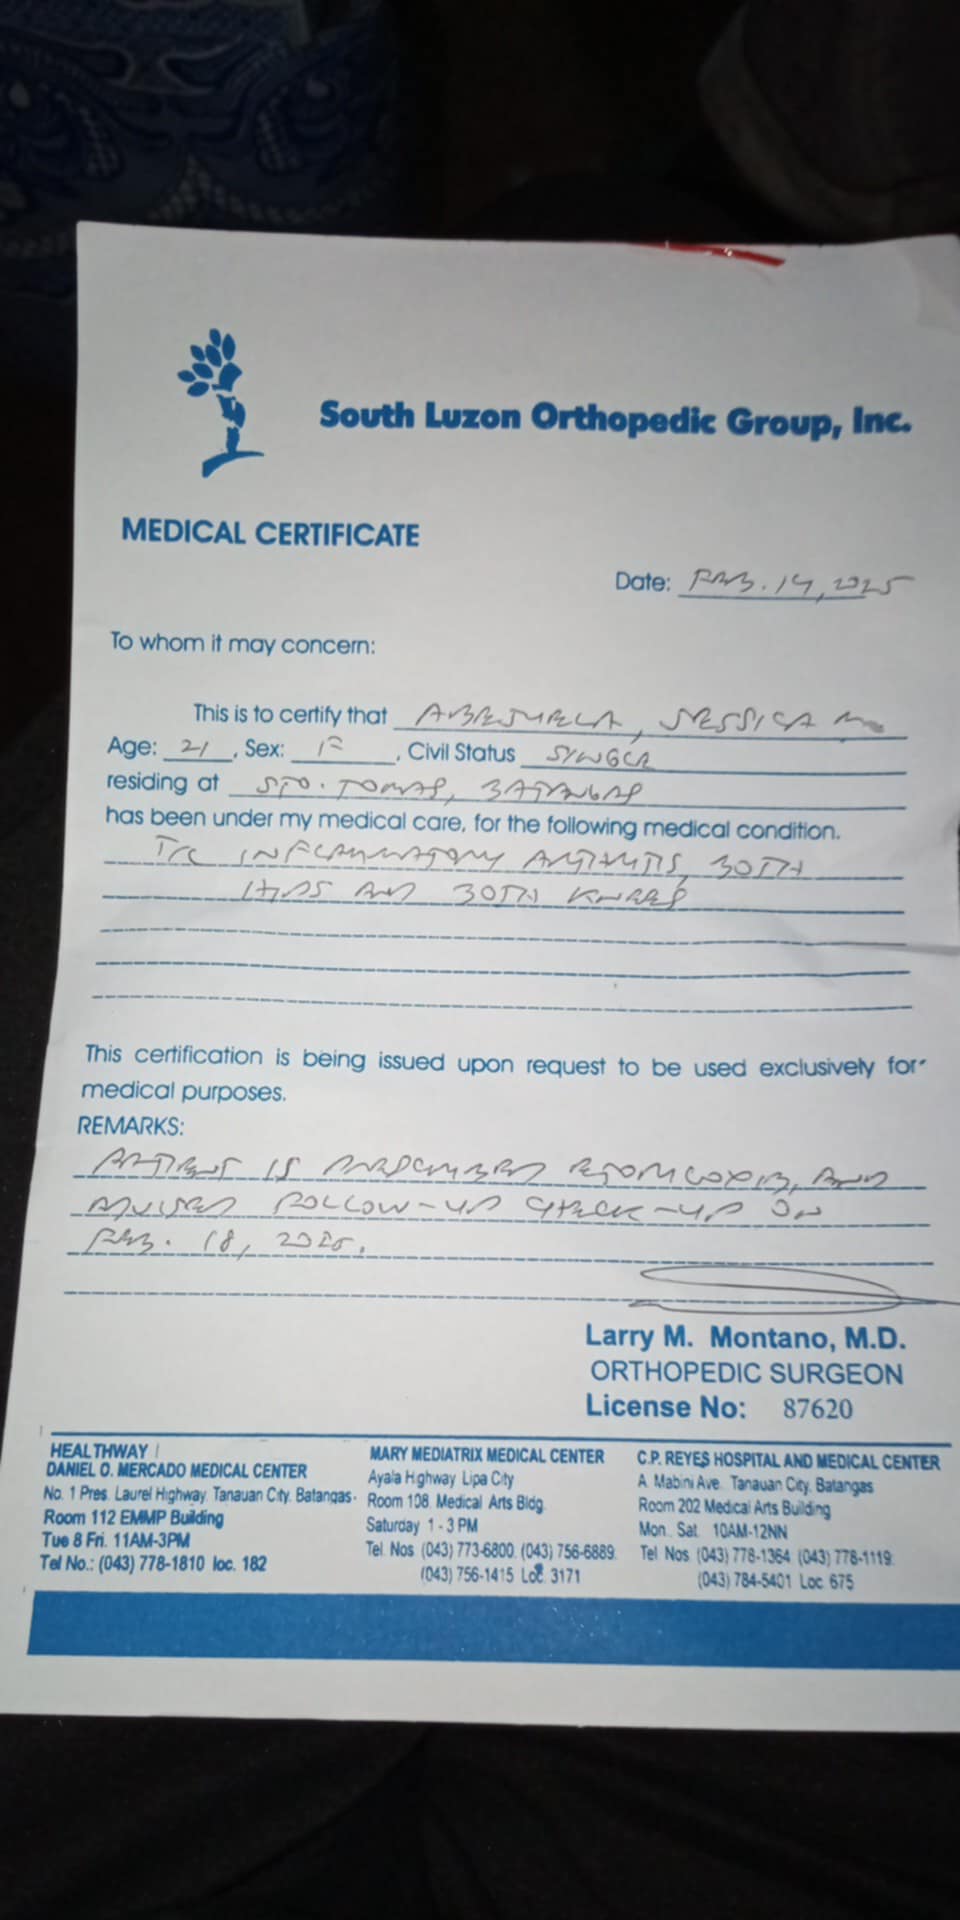 South Luzon Orthopedic Group, Inc.
MEDICAL CERTIFICATE
Date: FEB. 14, 2025
To whom it may concern:
This is to certify that JESSICA M
Age: 21, Sex: F, Civil Status SINGLE
residing at STO. TOMAS, BATANGAS
has been under my medical care, for the following medical condition.
T/C INFLAMMATORY ARTHRITIS, BOTH
AND BOTH KNEES
This certification is being issued upon request to be used exclusively for
medical purposes.
REMARKS:
PATIENT IS PRESCRIBED ETORICOXIB, AND
ADVISED FOLLOW-UP CHECK-UP ON
FEB. 18, 2025.
Larry M. Montano, M.D.
ORTHOPEDIC SURGEON
License No: 87620
HEALTHWAY
DANIEL O. MERCADO MEDICAL CENTER
No. 1 Pres. Laurel Highway, Tanauan City, Batangas
Room 112 EMMP Building
Tue 8 Fri. 11AM-3PM
Tel No.: (043) 778-1810 loc. 182
MARY MEDIATRIX MEDICAL CENTER
Ayala Highway Lipa City
Room 108, Medical Arts Bldg.
Saturday 1 - 3 PM
Tel. Nos (043) 773-6800, (043) 756-6889
(043) 756-1415 Loc. 3171
C.P. REYES HOSPITAL AND MEDICAL CENTER
A. Mabini Ave. Tanauan City, Batangas
Room 202 Medical Arts Building
Mon. Sat. 10AM-12NN
Tel. Nos (043) 778-1364 (043) 778-1119
(043) 784-5401 Loc. 675